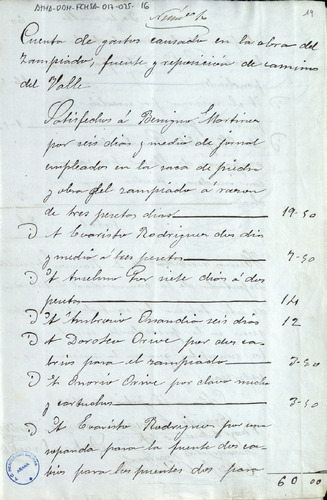 ATHA-DOH-FCHSA-017-025-16
Número 6
19
Cuenta de gastos causados en la obra del
zampiado, fuente y reposicion de caminos
del Valle
Satisfechos á Benigno Martinez
por seis dias y medio de jornal
empleados en la saca de piedra
y obra del zampiado á razon
de tres pesetas dias 19-50
D A Evaristo Rodriguez dos dias
y medio á tres pesetas 7-50
D A Anselmo Paz siete dias á dos
pesetas 14
D A Ambrosio Essandia seis dias 12
D A Doroteo Orive por dos ca-
brios para el zampiado 3-50
D A Onorio Orive por clavos mecha
y cartuchos 3-50
D A Evaristo Rodriguez por una
sopanda para la fuente dos ca-
brios para los puentes dos para
60 00